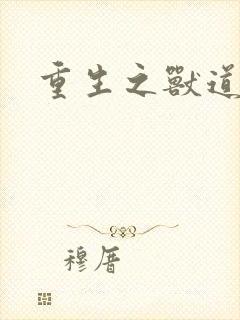 重生之獸道
穆厝